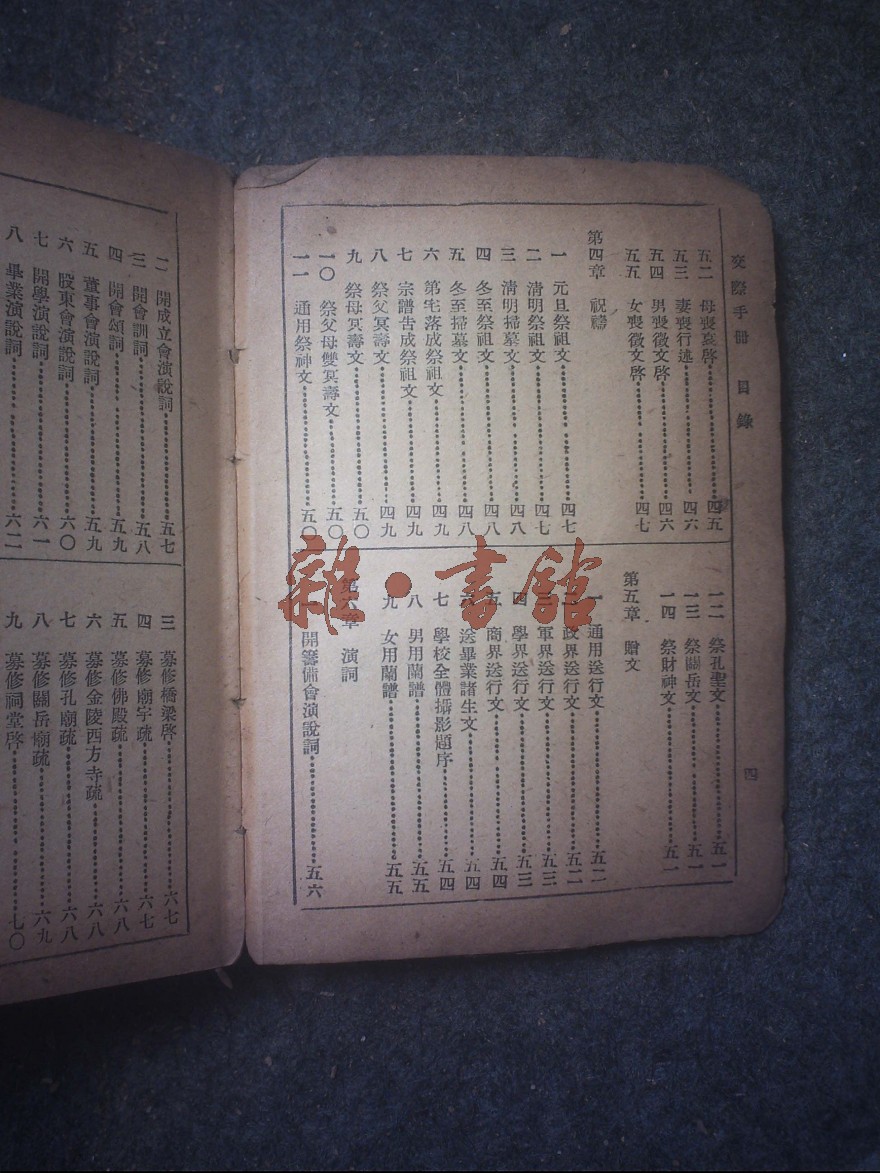 交際手册 目錄
四
五二 母喪哀啓 四五
五三 妻喪行述 四六
五四 男喪徵文啓 四六
五五 女喪徵文啓 四七
第四章 祝禱
一 元旦祭祖文 四七
二 清明祭祖文 四七
三 清明掃墓文 四八
四 冬至祭祖文 四八
五 冬至掃墓文 四八
六 第宅落成祭祖文 四九
七 宗譜告成祭祖文 四九
八 祭父冥壽文 四九
九 祭母冥壽文 五〇
一〇 祭父母雙冥壽文 五〇
一一 通用祭神文 五〇
一二 祭孔聖文 五一
一三 祭關岳文 五一
一四 祭財神文 五一
第五章 贈文
一 通用送行文 五二
二 政界送行文 五二
三 軍界送行文 五三
四 學界送行文 五三
五 商界送行文 五四
六 送畢業諸生文 五四
七 學校全體攝影題序 五四
八 男用蘭譜 五五
九 女用蘭譜 五五
第六章 演詞
一 開籌備會演說詞 五六
二 開成立會演說詞 五七
三 開會訓詞 五八
四 開會頌詞 五九
五 董事會演說詞 五九
六 股東會演說詞 六〇
七 開學演說詞 六一
八 畢業演說詞 六二
三 募修橋梁啓 六七
四 募修廟宇疏 六七
五 募修佛殿疏 六八
六 募修金陵西方寺疏 六八
七 募修孔廟疏 六八
八 募修關岳廟疏 六九
九 募修祠堂啓 七〇
雜·書館